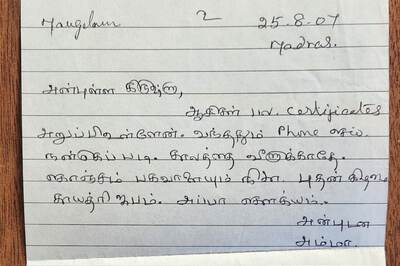 Mangalore 2 25-8-07
Madras.
அன்புள்ள
certificates
அனுப்பியுள்ளேன். வந்ததும் Phone செய்.
நன்கு படி. காலத்தை வீணாக்காதே.
கொஞ்சம் பகவானையும் நினை. புதன் கிழமை
காயத்ரி ஜபம். அப்பா சௌக்யம்.
அன்புடன்
அம்மா.